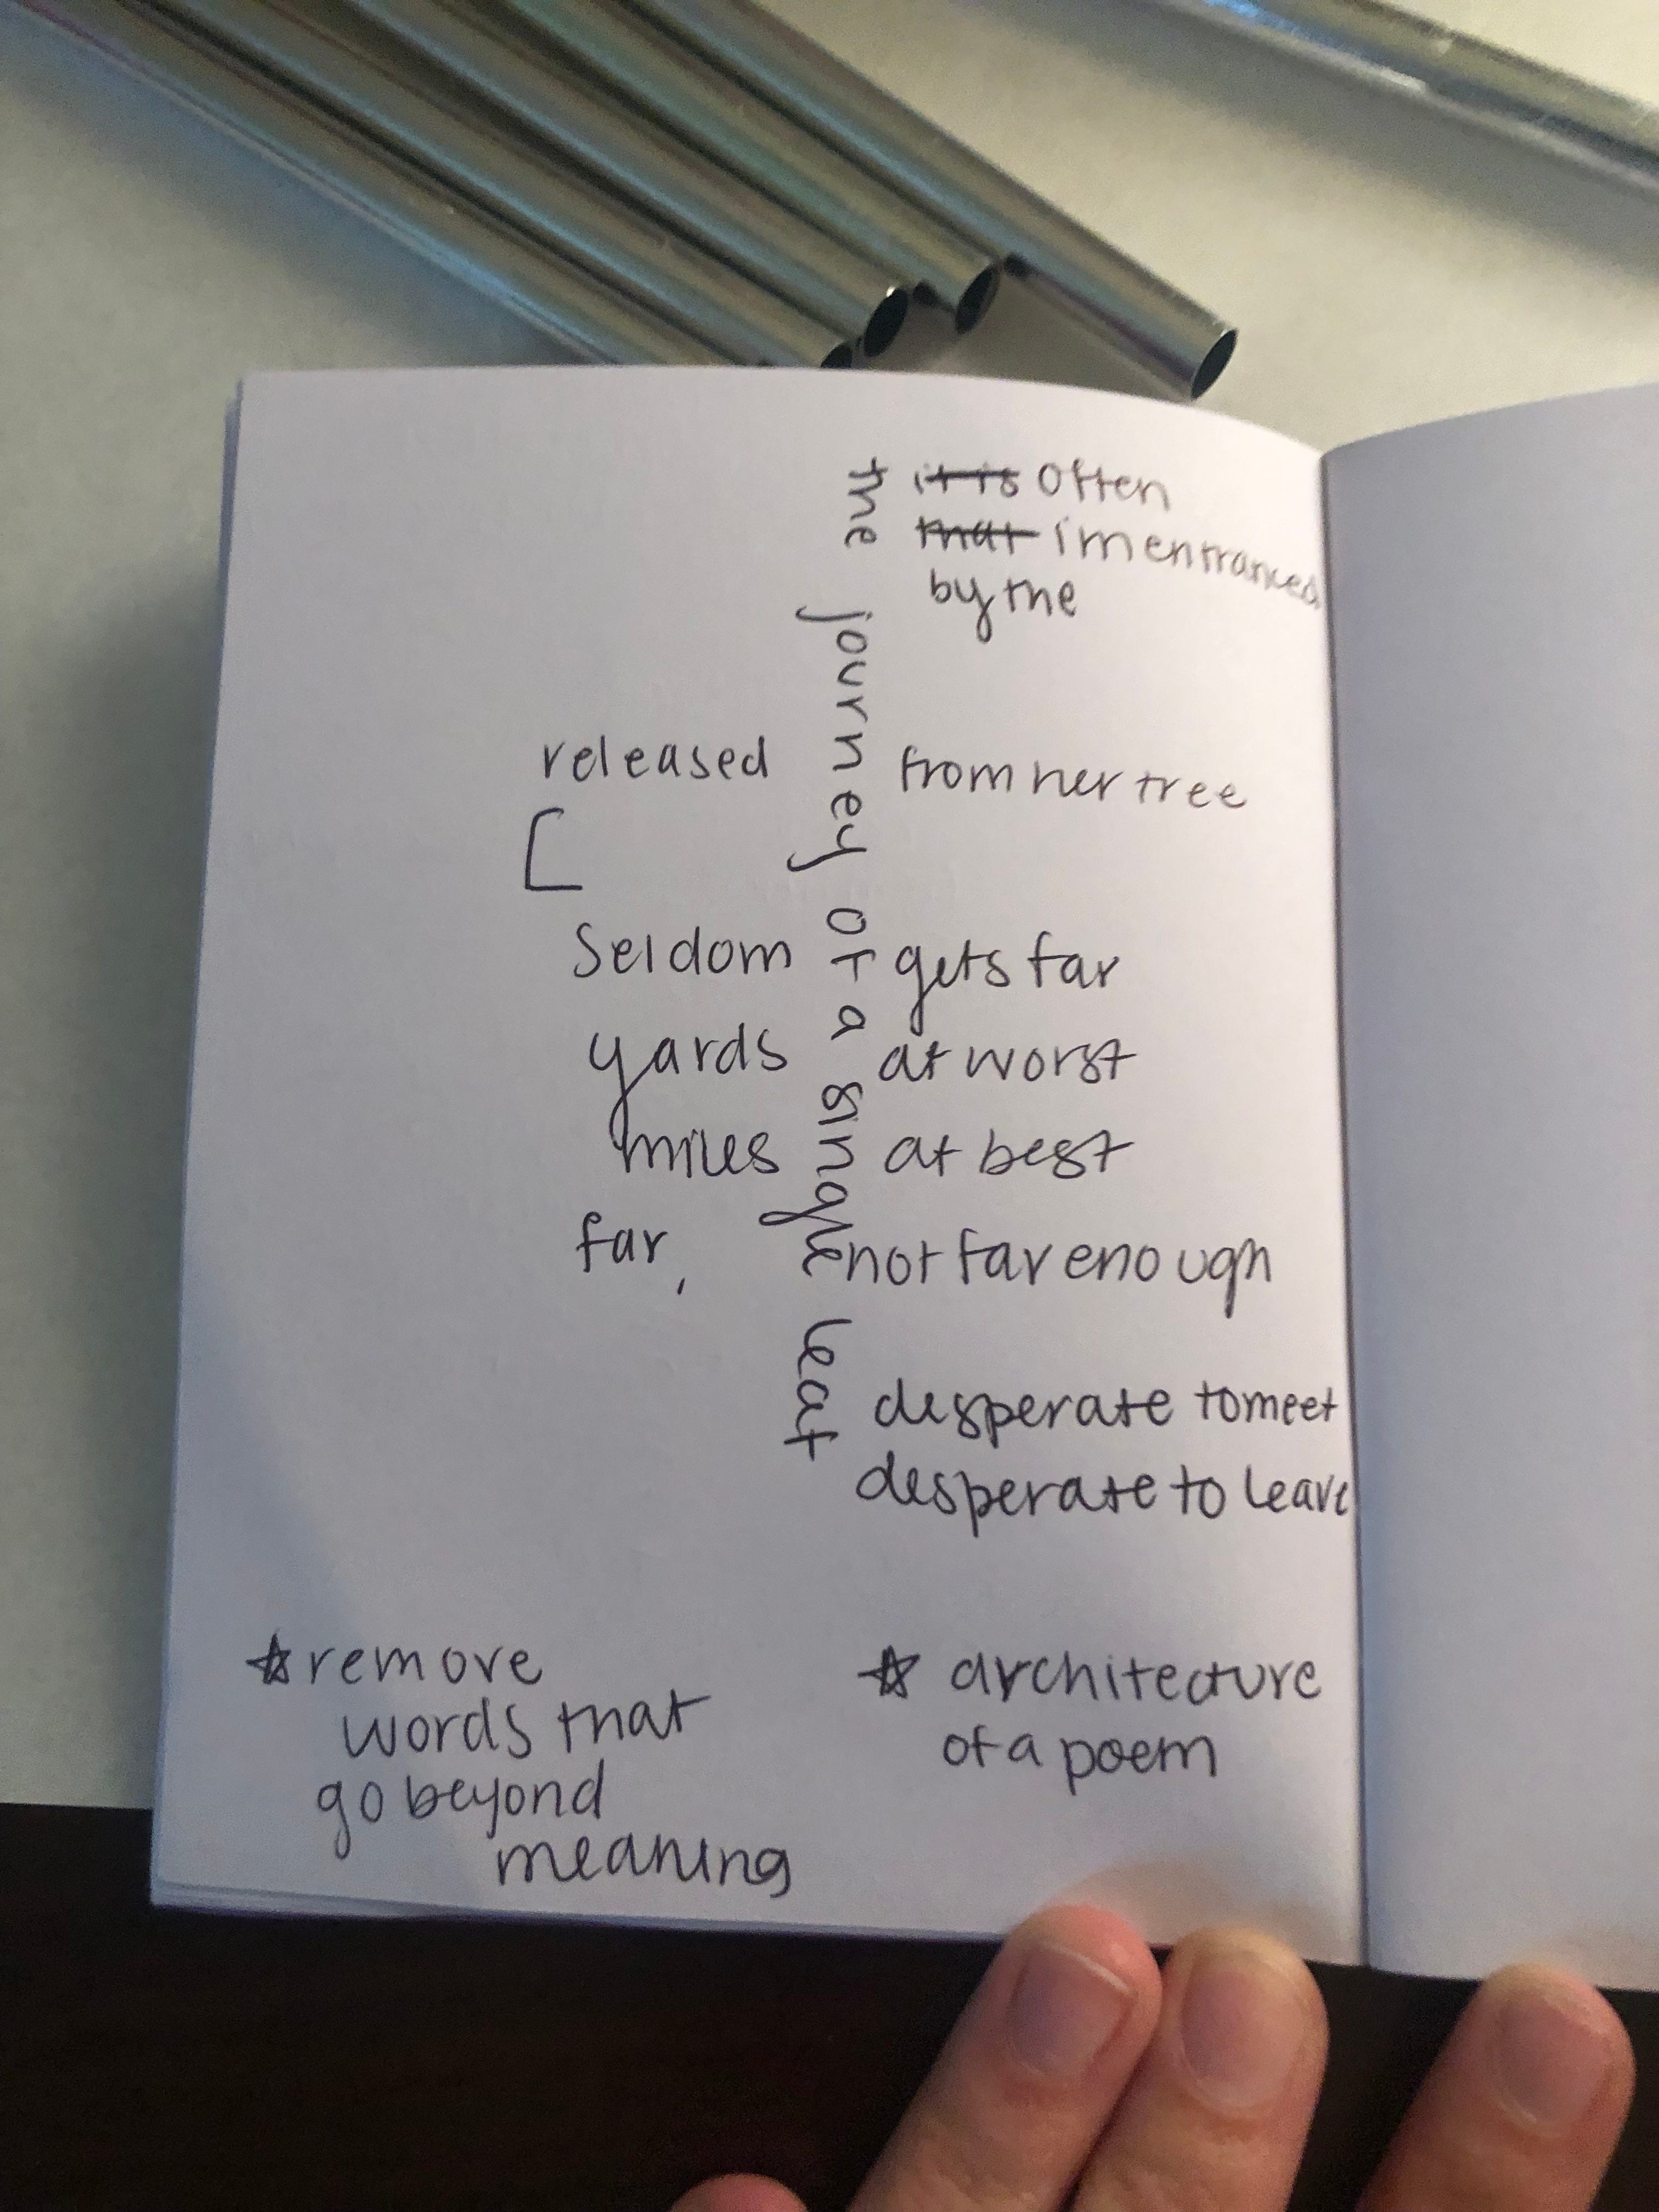 it is Often
that i'm entranced
by the
the journey of a single leaf
released from her tree
[
Seldom gets far
yards at worst
miles at best
far, not far enough
desperate to meet
desperate to leave
☆ remove
words that
go beyond
meaning
☆ architecture
of a poem